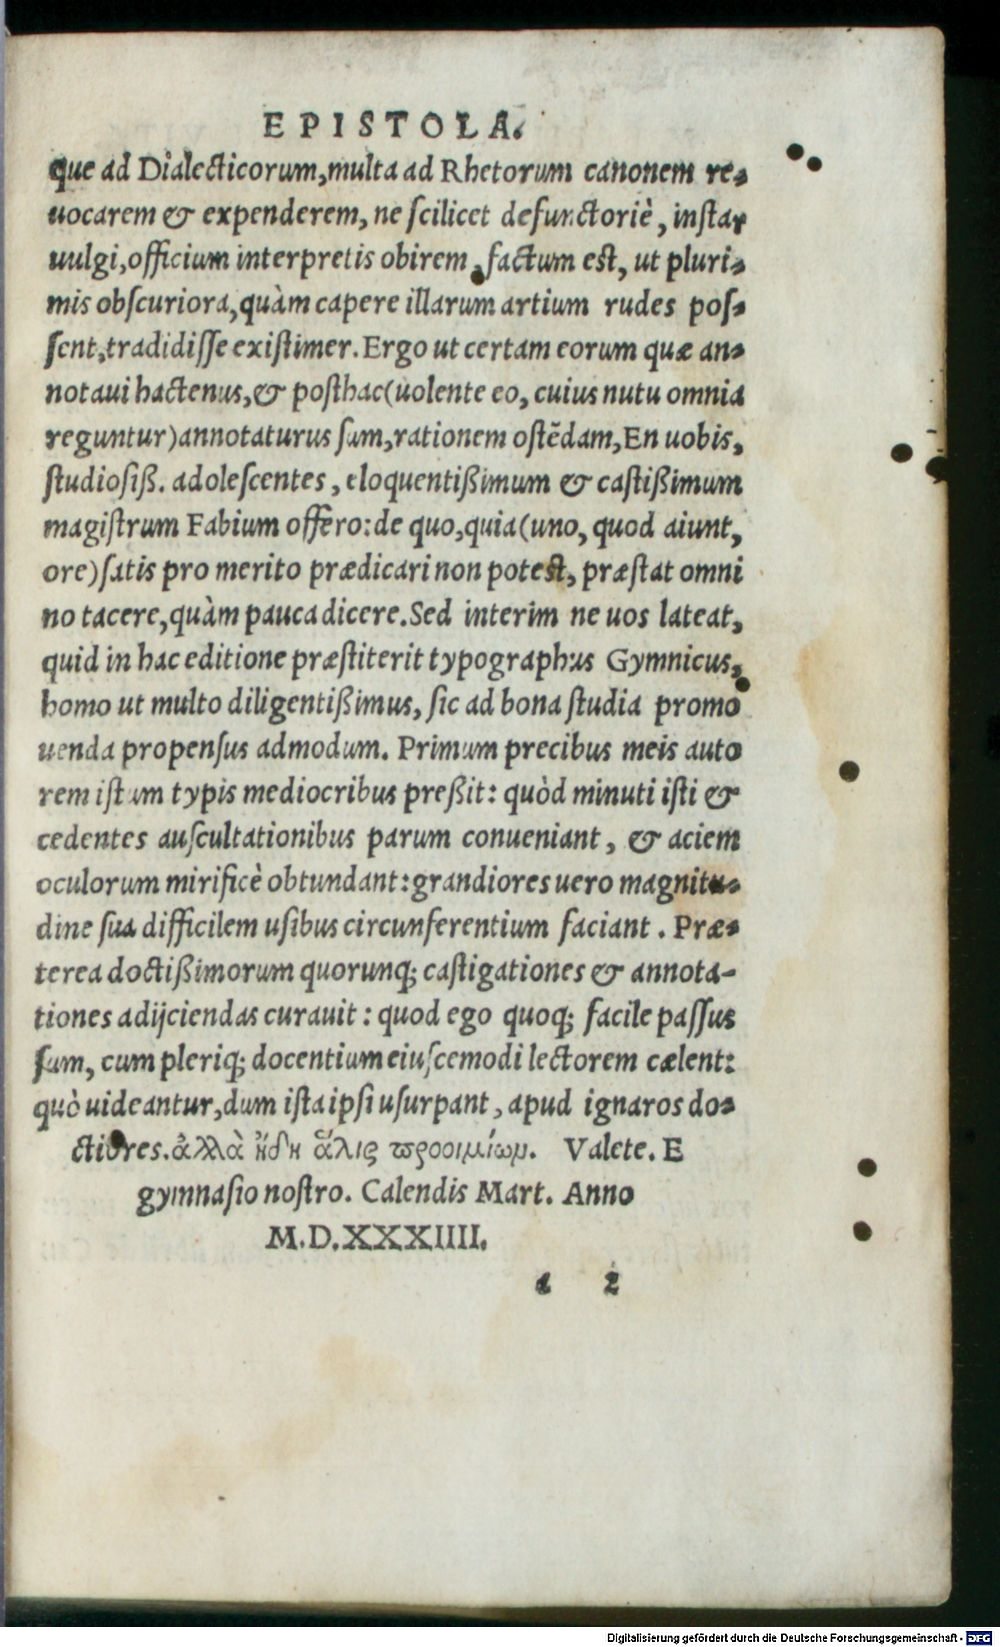 EPISTOLA.
que ad Dialecticorum, multa ad Rhetorum canonem re-
uocarem & expenderem, ne scilicet defunctoriè, instar
uulgi, officium interpretis obirem, factum est, ut pluri-
mis obscuriora, quàm capere illarum artium rudes pos-
sent, tradidisse existimer. Ergo ut certam eorum quæ an-
notaui hactenus, & posthac (uolente eo, cuius nutu omnia
reguntur) annotaturus sum, rationem ostẽdam, En uobis,
studiosiß. adolescentes, eloquentißimum & castißimum
magistrum Fabium offero: de quo, quia (uno, quod aiunt,
ore) satis pro merito prædicari non potest, præstat omni
no tacere, quàm pauca dicere. Sed interim ne uos lateat,
quid in hac editione præstiterit typographus Gymnicus,
homo ut multo diligentißimus, sic ad bona studia promo
uenda propensus admodum. Primum precibus meis auto
rem istum typis mediocribus preßit: quòd minuti isti &
cedentes auscultationibus parum conueniant, & aciem
oculorum mirificè obtundant: grandiores uero magnitu-
dine sua difficilem usibus circunferentium faciant. Præ-
terea doctißimorum quorunq; castigationes & annota-
tiones adijciendas curauit: quod ego quoq; facile passus
sum, cum pleriq; docentium eiuscemodi lectorem cælent:
quò uideantur, dum ista ipsi usurpant, apud ignaros do-
ctiores. ἀλλὰ ἤδη ἅλις προοιμίωμ. Valete. E
gymnasio nostro. Calendis Mart. Anno
M.D.XXXIIII.
a 2
Digitalisierung gefördert durch die Deutsche Forschungsgemeinschaft - DFG